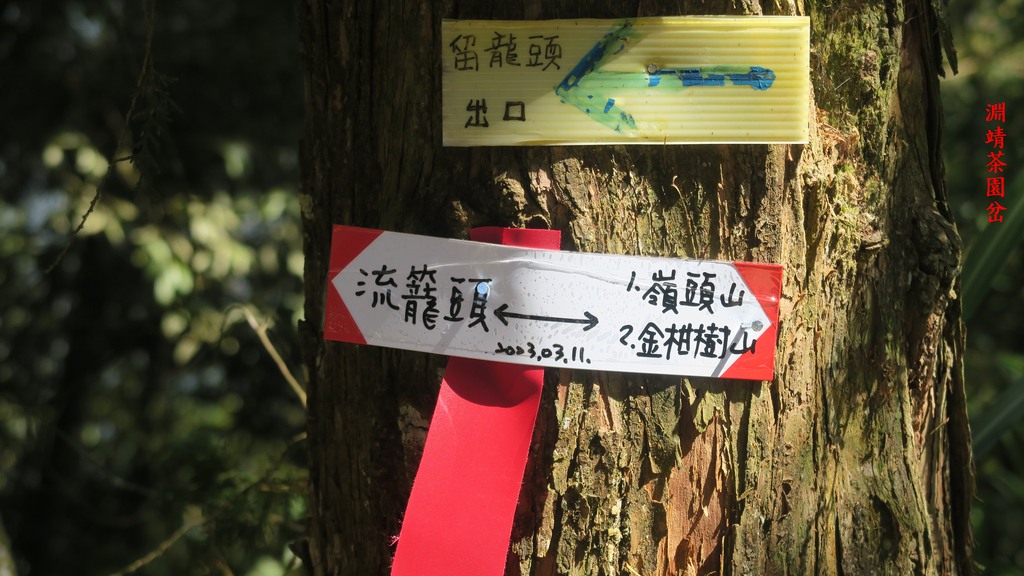 留龍頭
出口
流籠頭
1.嶺頭山
2.金柑樹山
2023.03.11.
淵靖茶園岔